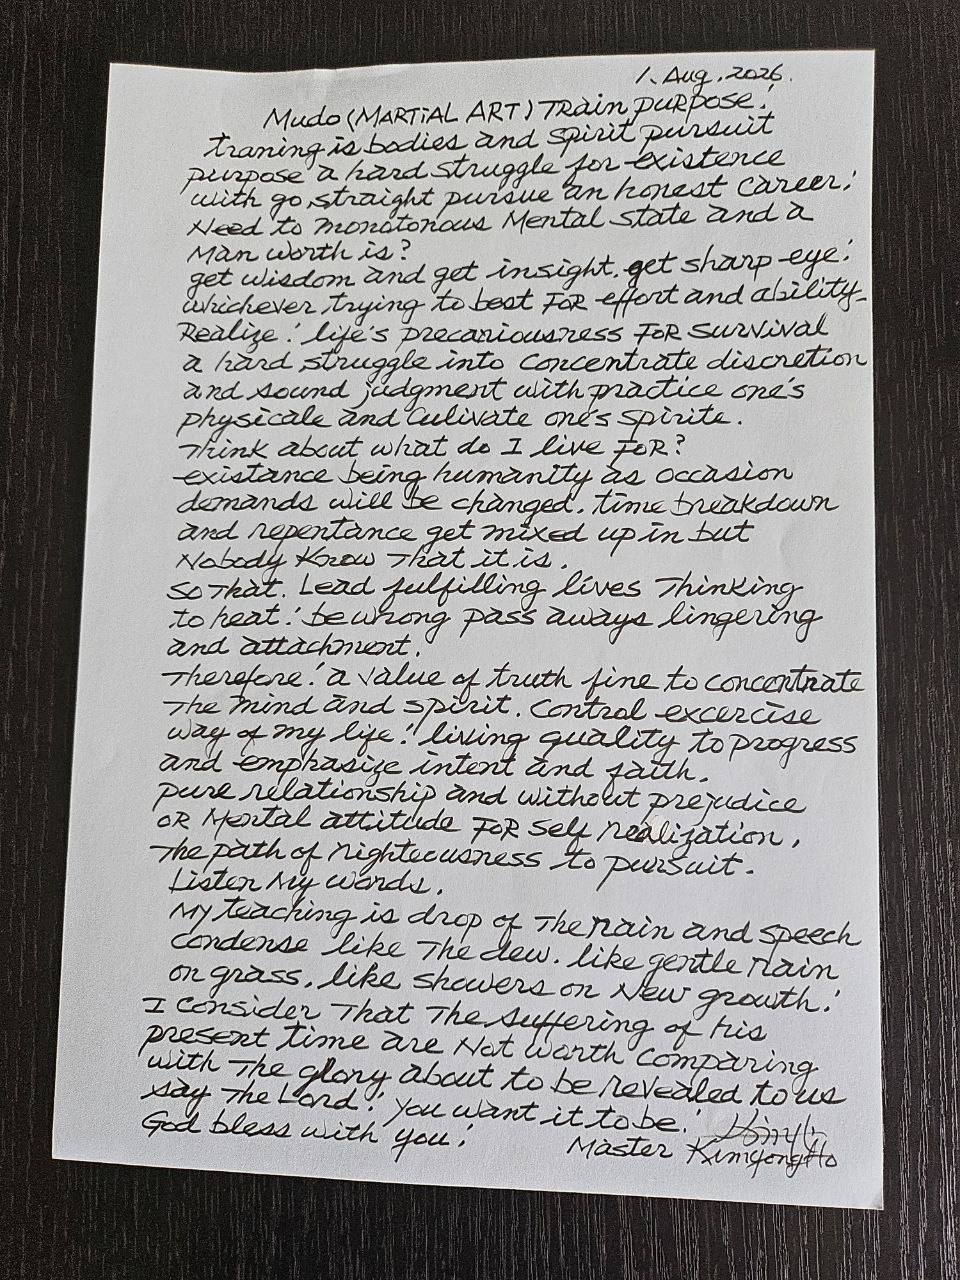 1. Aug. 2026.
Mudo (MARTiAL ART) TRain puRpose!
traning is bodies and spirit pursuit
purpose a hard struggle for existence
with go straight pursue an honest career!
Need to monotonous Mental state and a
Man worth is?
get wisdom and get insight. get sharp eye!
whichever trying to best FOR effort and ability.
Realize! life's precariousness FOR survival
a hard struggle into concentrate discretion
and sound judgment with practice one's
physicale and culivate one's spirite.
Think about what do I live FOR?
existance being humanity as occasion
demands will be changed. time breakdown
and repentance get mixed up in but
Nobody Know That it is.
So That. Lead fulfilling lives Thinking
to heat! be wrong pass aways lingering
and attachment.
Therefore! a value of truth fine to concentrate
The mind and spirit. control excercise
way of my life! living quality to progress
and emphasize intent and faith.
pure relationship and without prejudice
OR Mental attitude FOR self realization.
The path of righteousness to pursuit.
Listen My words.
My teaching is drop of The rain and speech
condense like The dew. like gentle rain
on grass. like showers on New growth!
I consider That The suffering of his
present time are Not worth comparing
with The glory about to be revealed to us
say The Lord! you want it to be!
God bless with you!
Master KimyongHo